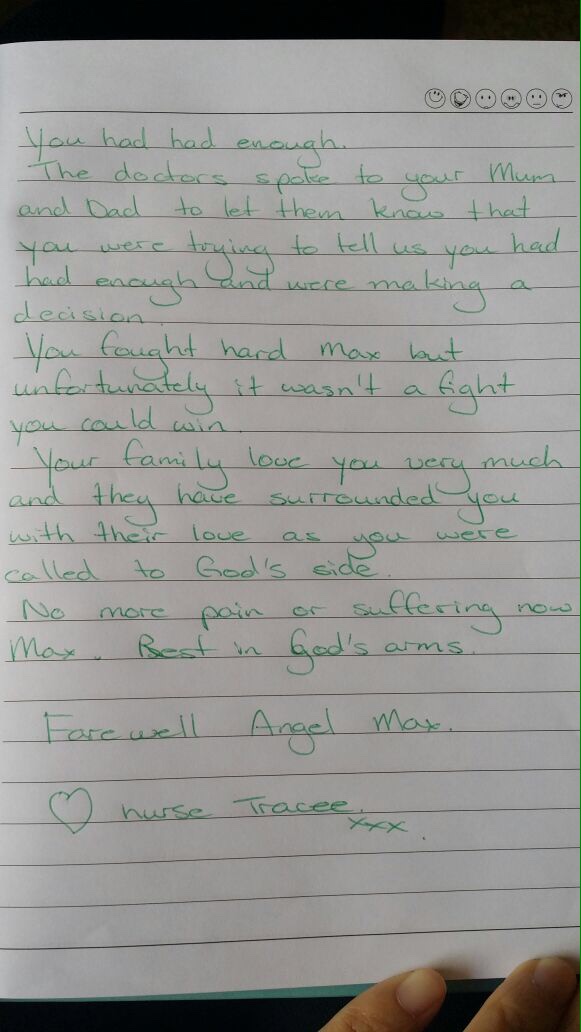 You had had enough.
The doctors spoke to your Mum
and Dad to let them know that
you were trying to tell us you had
had enough and were making a
decision.
You fought hard Max but
unfortunately it wasn't a fight
you could win.
Your family love you very much
and they have surrounded you
with their love as you were
called to God's side.
No more pain or suffering now
Max. Rest in God's arms.
Farewell Angel Max.
♡ nurse Tracee.
xxx.